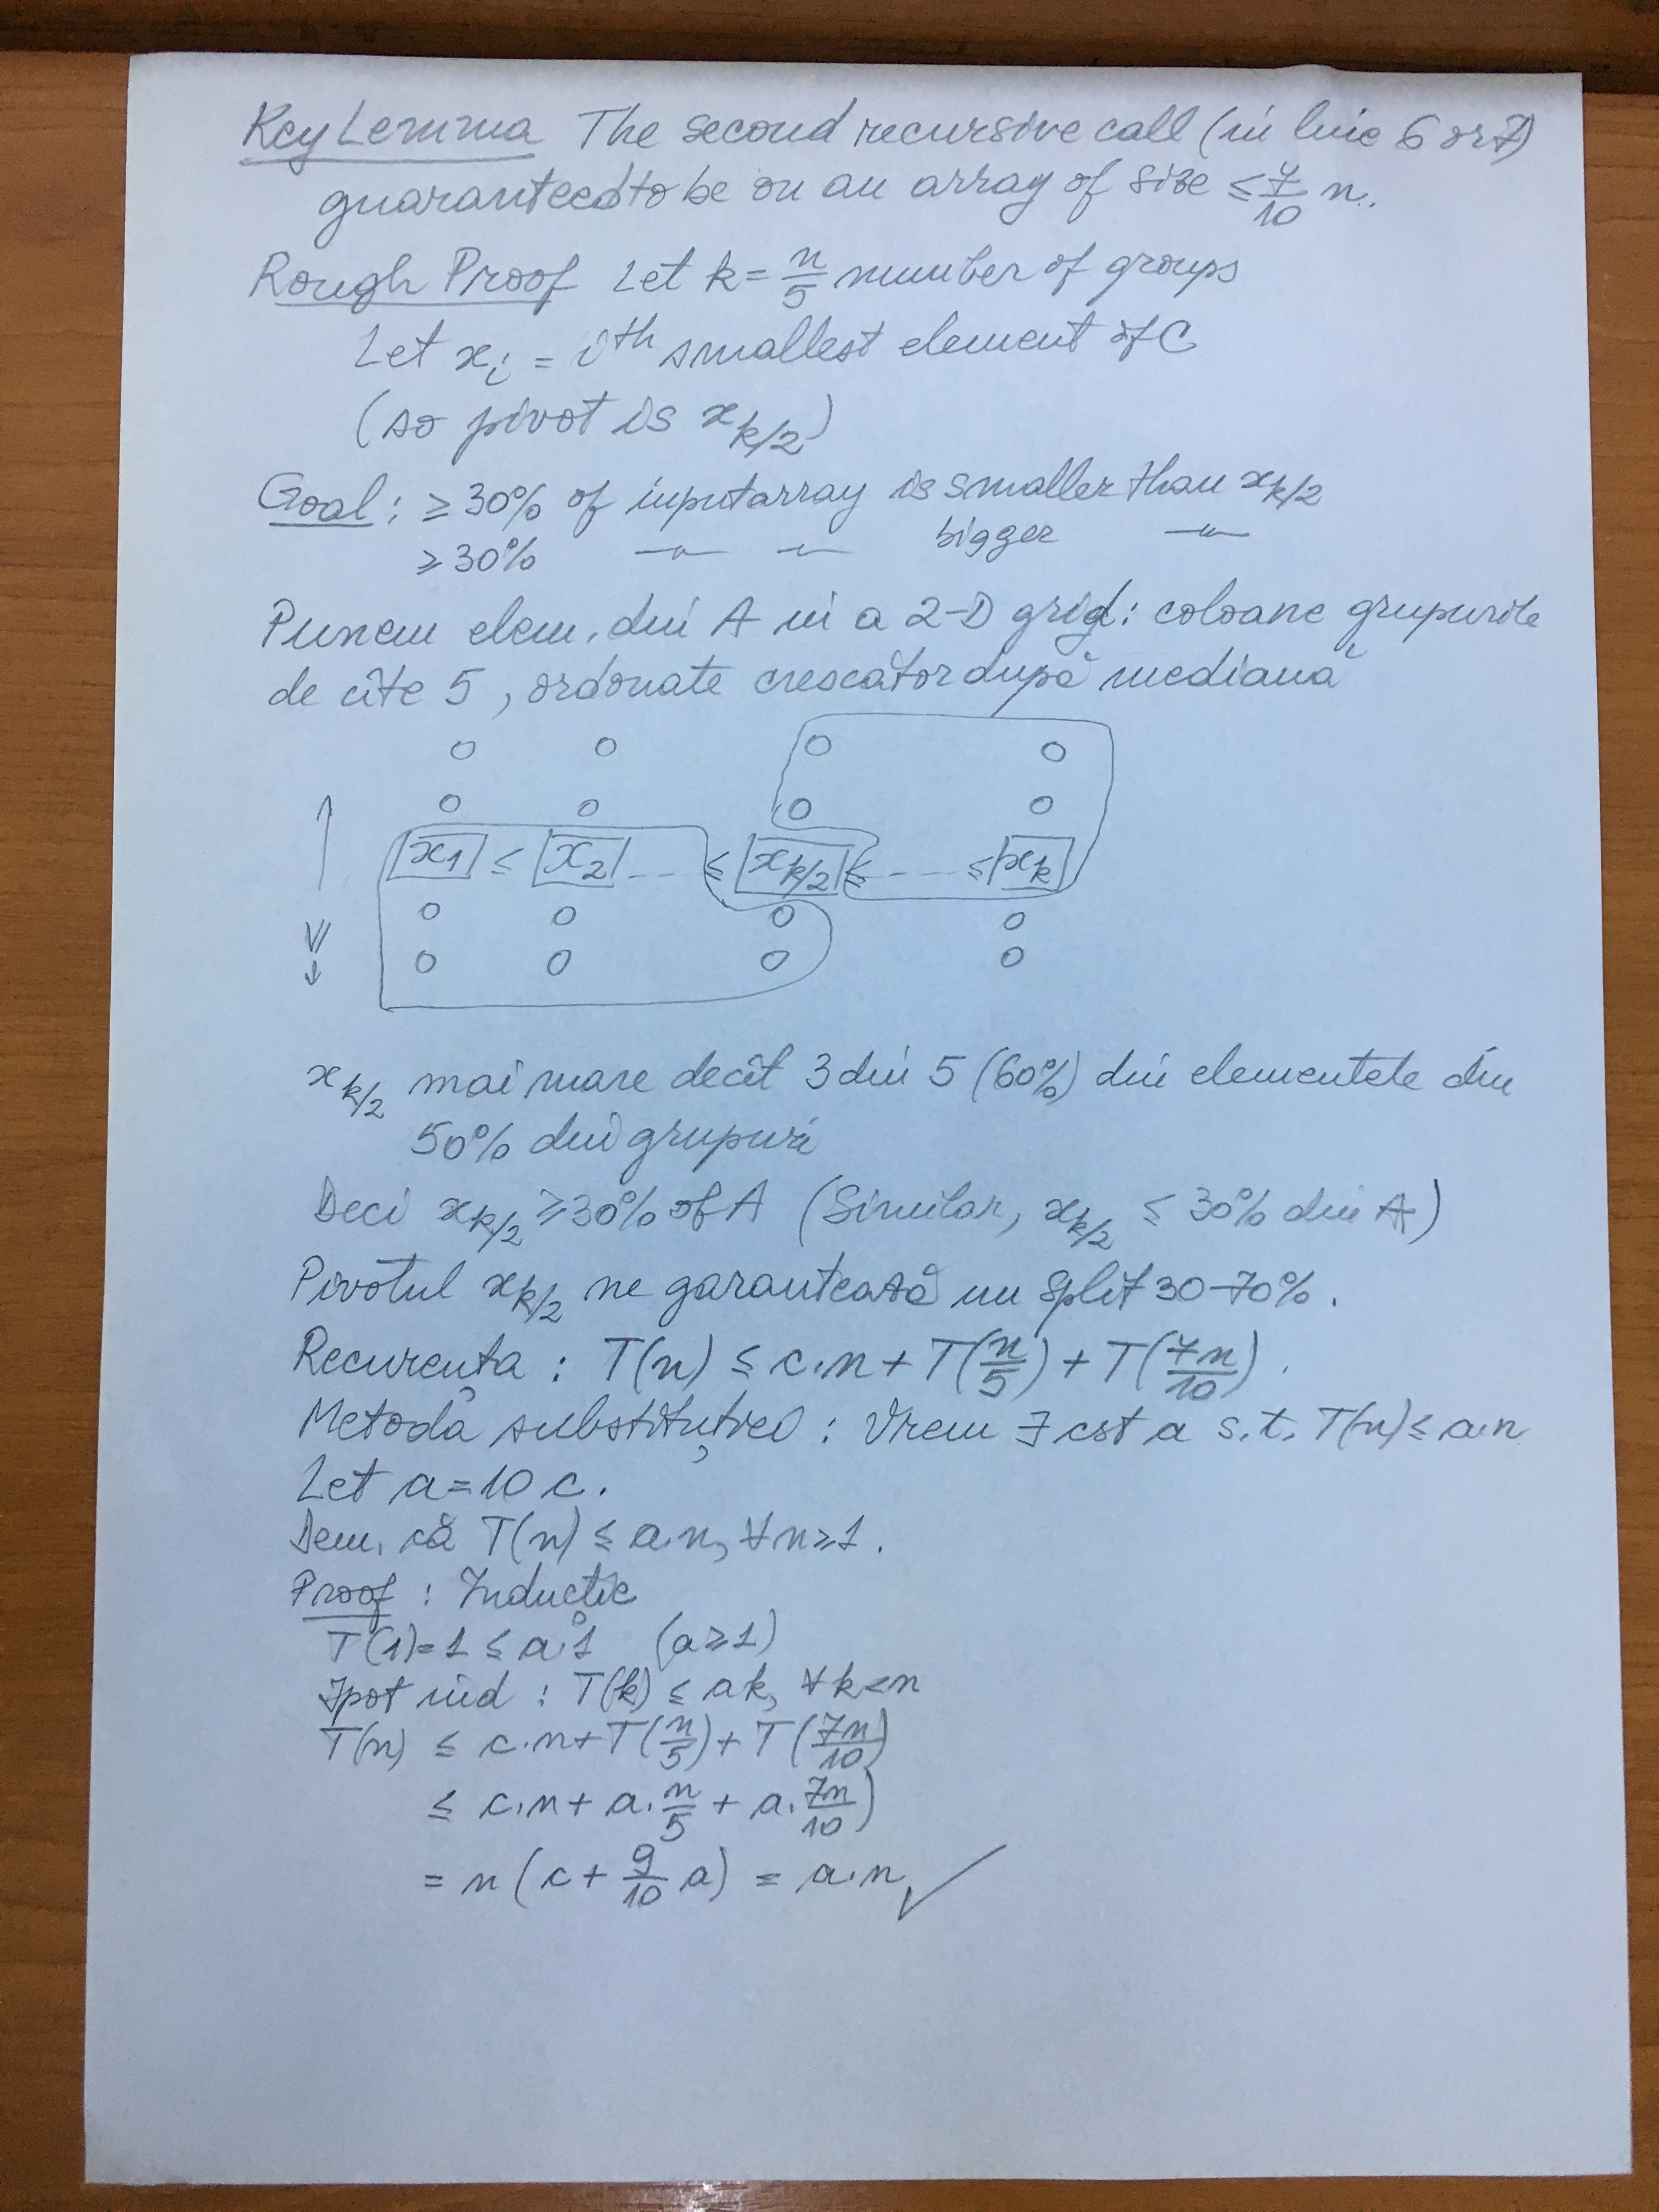 Key Lemma The second recursive call (in line 6 or 7)
guaranteed to be on an array of size ≤ 7/10 n.
Rough Proof Let k = n/5 number of groups
Let x_i = i^th smallest element of C
(so pivot is x_k/2)
Goal: ≥ 30% of input array is smaller than x_k/2
≥ 30% —"— —"— bigger —"—
Punem elem. din A in a 2-D grid: coloane grupurile
de cîte 5, ordonate crescător după mediană
x1 ≤ x2 --- ≤ x_k/2 ≤ --- ≤ x_k
x_k/2 mai mare decît 3 din 5 (60%) din elementele din
50% din grupuri
Deci x_k/2 ≥ 30% of A (Similar, x_k/2 ≤ 30% din A)
Pivotul x_k/2 ne garantează un split 30-70%.
Recurența: T(n) ≤ c·n + T(n/5) + T(7n/10).
Metoda substituției: Vrem ∃ cst a s.t. T(n) ≤ a·n
Let a = 10 c.
Dem. că T(n) ≤ a·n, ∀n≥1.
Proof: Inductie
T(1) = 1 ≤ a·1 (a≥1)
Ipot ind: T(k) ≤ ak, ∀k<n
T(n) ≤ c·n + T(n/5) + T(7n/10)
≤ c·n + a·n/5 + a·7n/10)
= n(c + 9/10 a) = a·n ✓